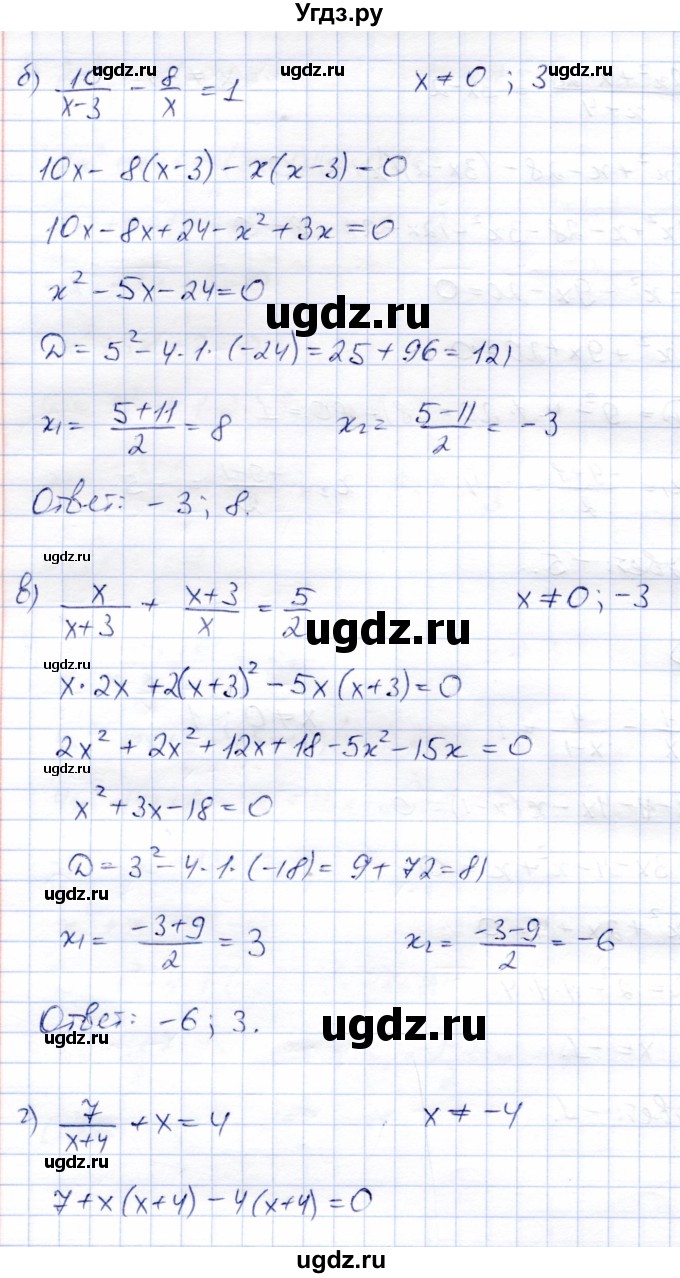 Угдз.ру
ugdz.ru ugdz.ru ugdz.ru
б) 10/(x-3) - 8/x = 1    x ≠ 0 ; 3
10x - 8(x-3) - x(x-3) = 0
10x - 8x + 24 - x² + 3x = 0
ugdz.ru
x² - 5x - 24 = 0
ugdz.ru
Д = 5² - 4·1·(-24) = 25 + 96 = 121
ugdz.ru
x₁ = (5+11)/2 = 8    x₂ = (5-11)/2 = -3
Ответ: -3; 8.
ugdz.ru
ugdz.ru
в) x/(x+3) + (x+3)/x = 5/2    x ≠ 0; -3
ugdz.ru
ugdz.ru
x·2x + 2(x+3)² - 5x(x+3) = 0
2x² + 2x² + 12x + 18 - 5x² - 15x = 0
ugdz.ru
x² + 3x - 18 = 0
Д = 3² - 4·1·(-18) = 9 + 72 = 81
ugdz.ru
x₁ = (-3+9)/2 = 3    x₂ = (-3-9)/2 = -6
Ответ: -6; 3.
ugdz.ru
ugdz.ru
г) 7/(x+4) + x = 4    x ≠ -4
ugdz.ru
7 + x(x+4) - 4(x+4) = 0
ugdz.ru